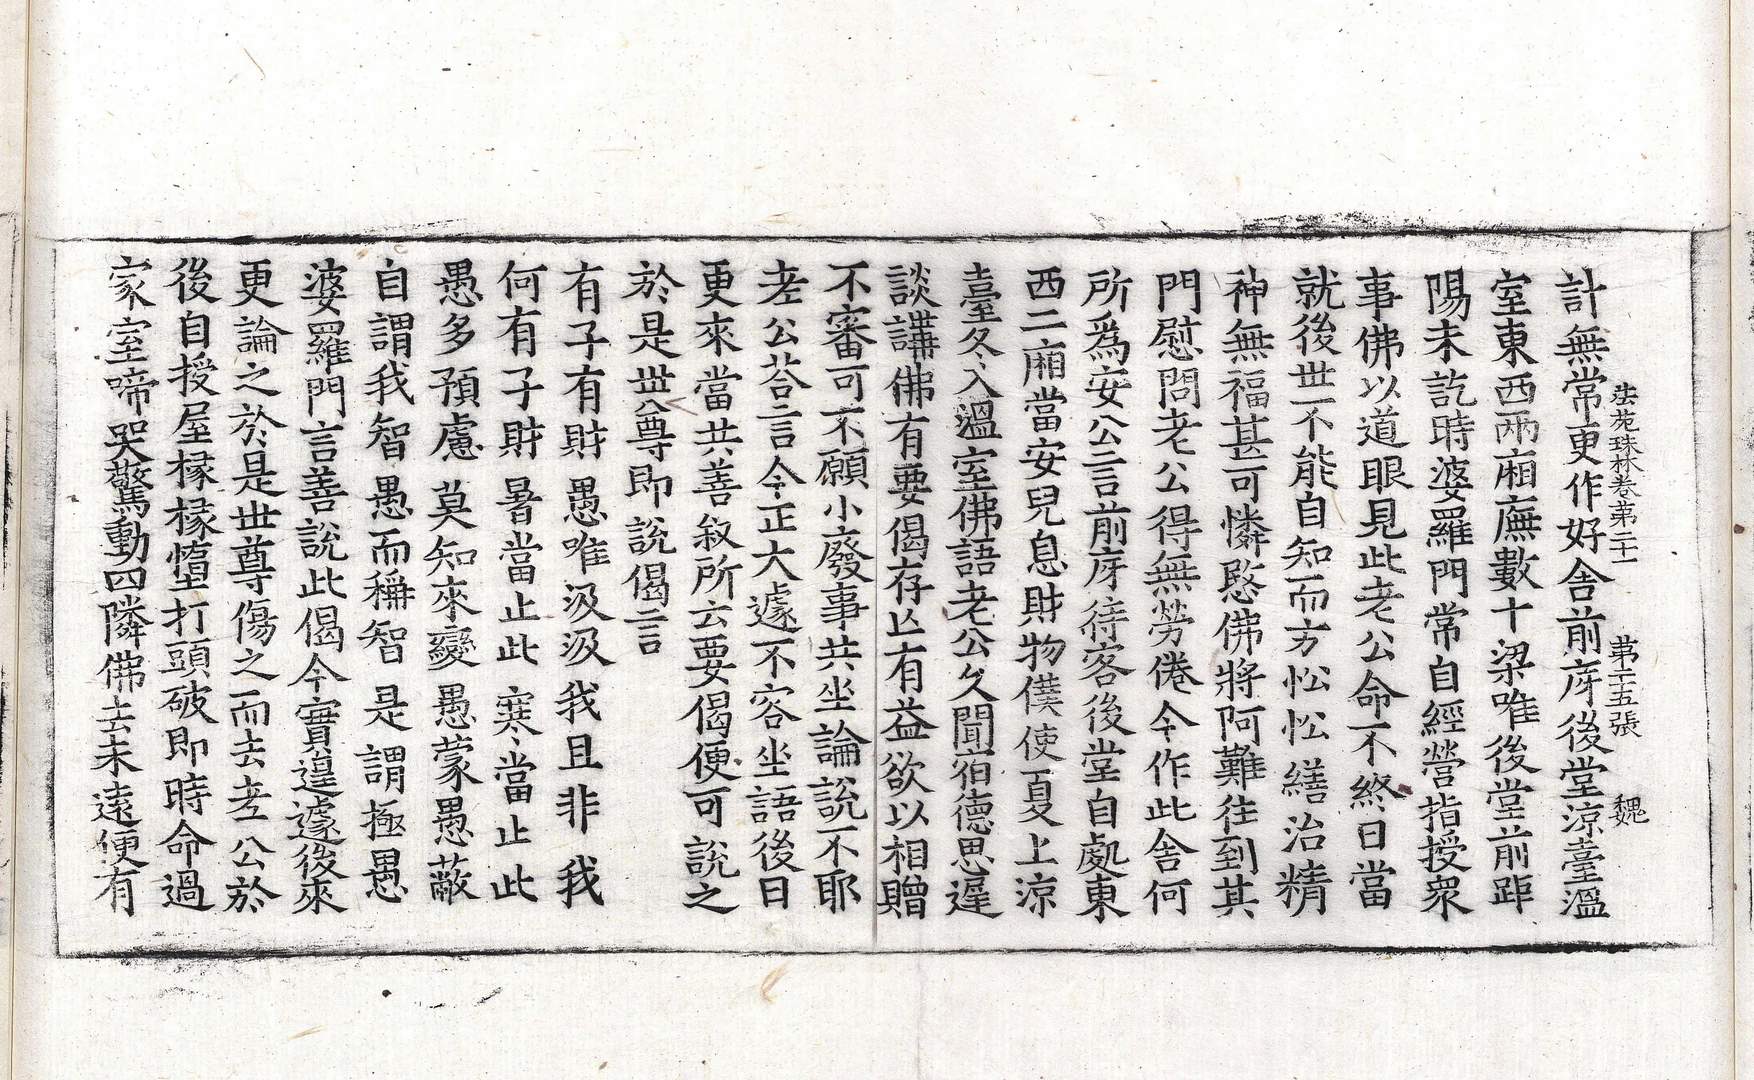 計無常更作好舍前庌後堂涼臺溫
法苑珠林卷第二十一　第二十五張　魏
室東西兩廂廡數十梁唯後堂前距
陽未訖時婆羅門常自經營指授衆
事佛以道眼見此老公命不終日當
就後世不能自知而方忪忪繕治精
神無福甚可憐愍佛將阿難往到其
門慰問老公得無勞倦今作此舍何
所爲安公言前庌待客後堂自處東
西二廂當安兒息財物僕使夏上涼
臺冬入溫室佛語老公久聞宿德思遲
談講佛有要偈存亾有益欲以相贈
不審可不願小廢事共坐論説不耶
老公荅言今正大遽不容坐語後日
更來當共善叙所云要偈便可説之
於是世尊即説偈言
有子有財　愚唯汲汲　我且非我
何有子財　暑當止此　寒當止此
愚多預慮　莫知來變　愚蒙愚蔽
自謂我智　愚而稱智　是謂極愚
婆羅門言善説此偈今實遑遽後來
更論之於是世尊傷之而去老公於
後自授屋椽椽墮打頭破即時命過
家室啼哭驚動四隣佛去未遠便有